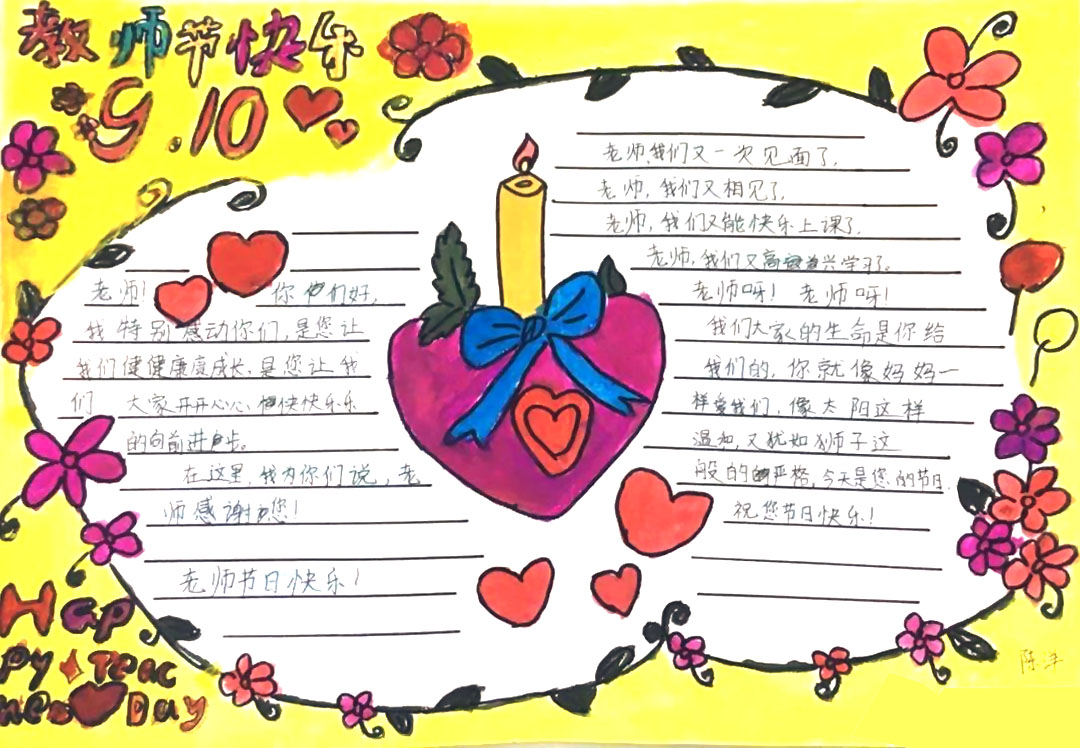 教师节快乐
9.10
老师!
你们好,
我特别感动你们,是您让
我们健健康康成长,是您让我
们 大家开开心心、快快乐乐
的向前进步。
在这里,我为你们说,老
师感谢您!
老师节日快乐!
老师,我们又一次见面了,
老师,我们又相见了,
老师,我们又能快乐上课了,
老师,我们又高兴学习了。
老师呀! 老师呀!
我们大家的生命是你给
我们的,你就像妈妈一
样爱我们,像太阳这样
温和,又犹如狮子这
般的严格,今天是您的节日,
祝您节日快乐!
Hap
py Teac
her Day
陈洋